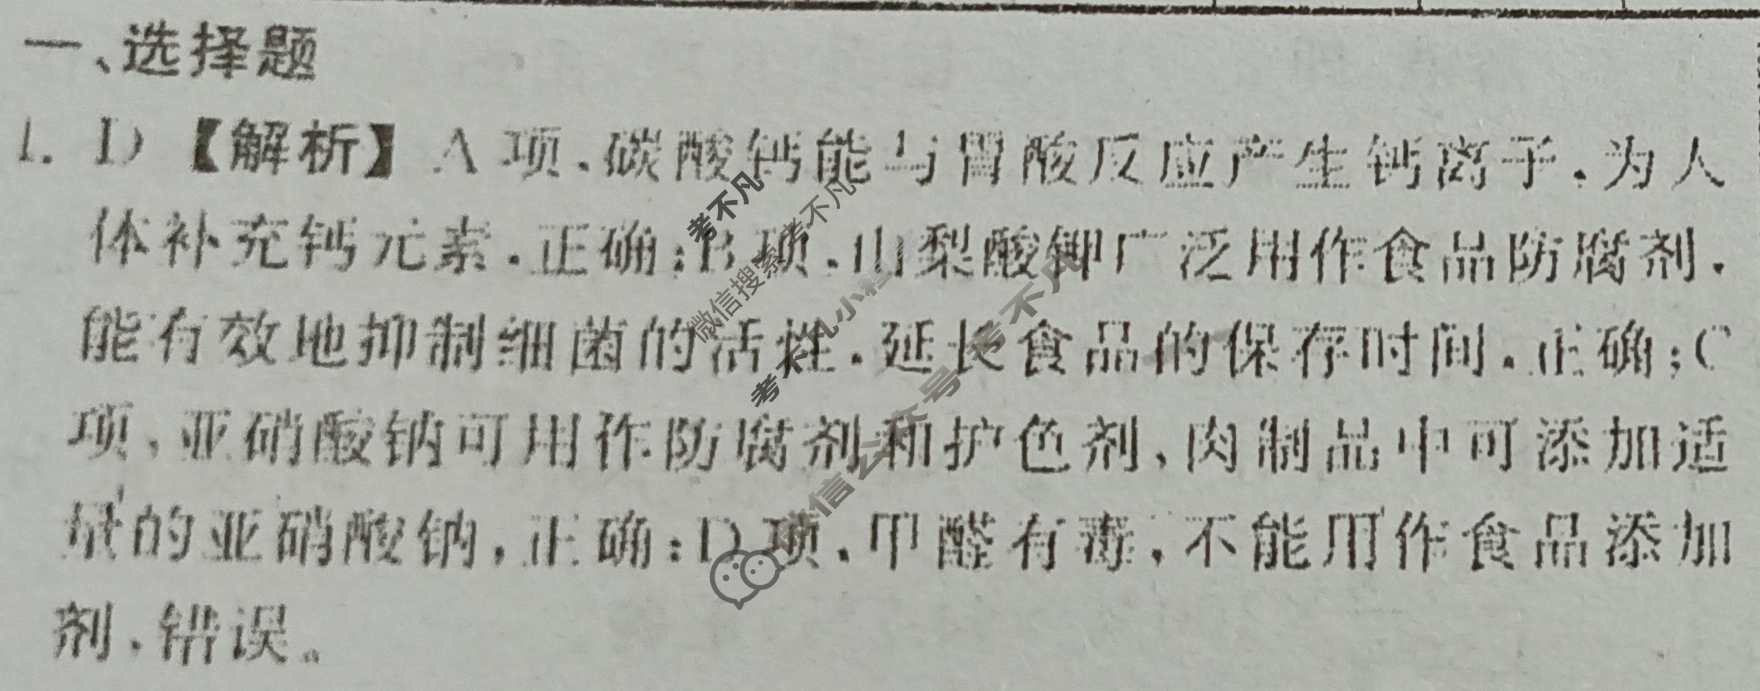 一、选择题
1. D 【解析】 A 项,碳酸钙能与胃酸反应产生钙离子,为人
体补充钙元素,正确;B 项,山梨酸钾广泛用作食品防腐剂,
能有效地抑制细菌的活性,延长食品的保存时间,正确;C
项,亚硝酸钠可用作防腐剂和护色剂,肉制品中可添加适
量的亚硝酸钠,正确;D 项,甲醛有毒,不能用作食品添加
剂,错误。
考不凡
考不凡
微信搜索
考不凡小程
微信公众号 考不凡